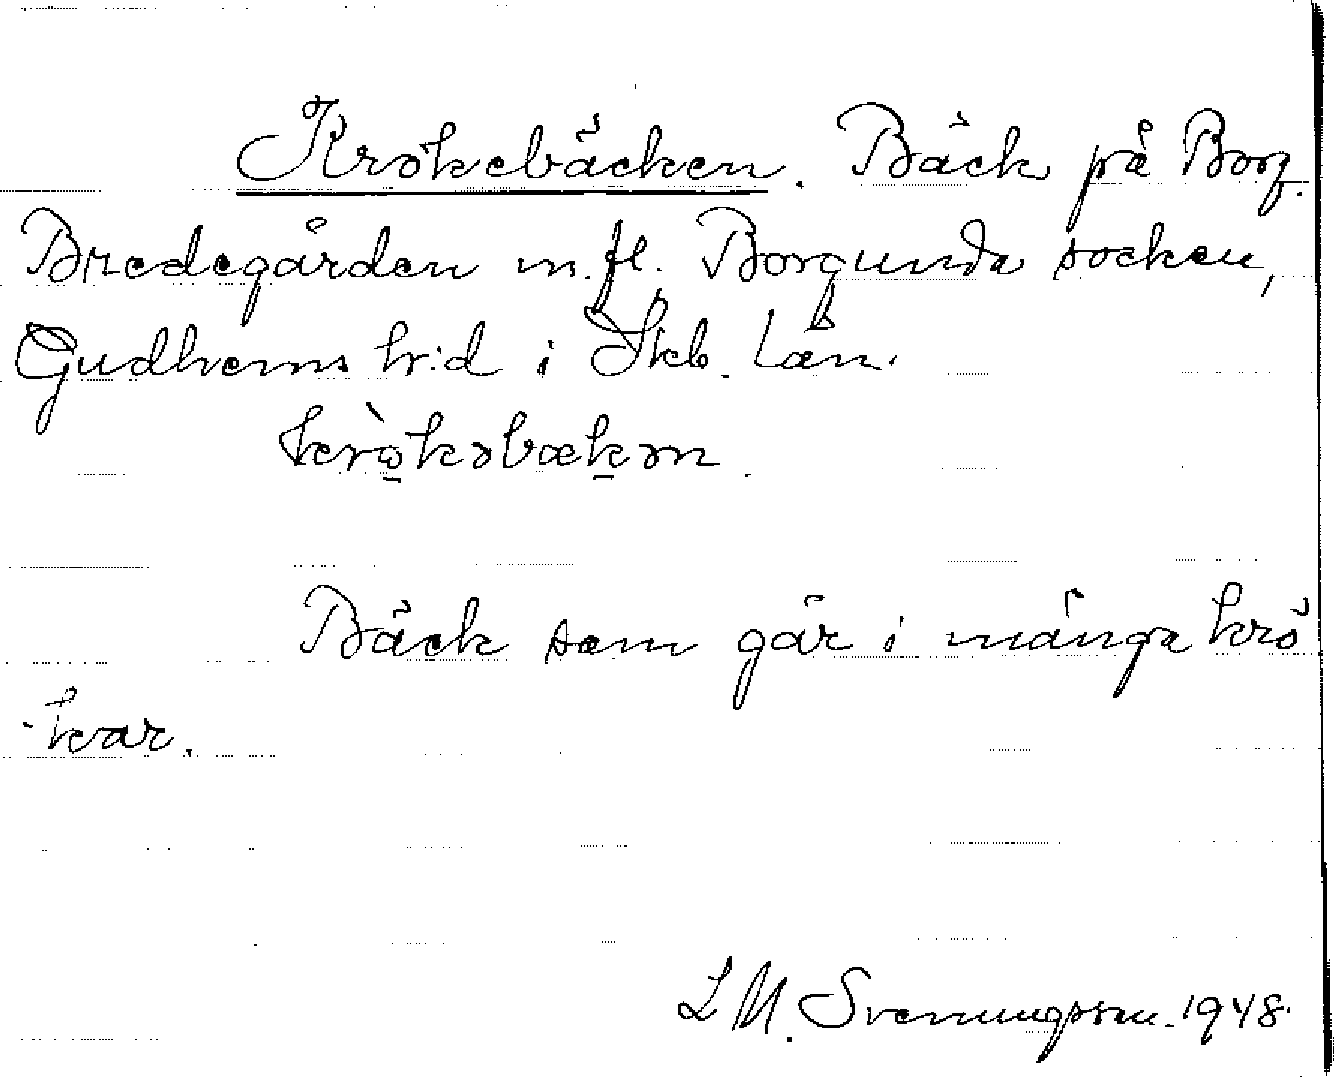 Krökebäcken. Bäck på Borg.
Bredegården m. fl. Borgunda socken,
Gudhems hr:d i Skb. län.
krò̱kəbæḵən.
Bäck som går i många krö
-kar.
L M. Svenungsson. 1948.